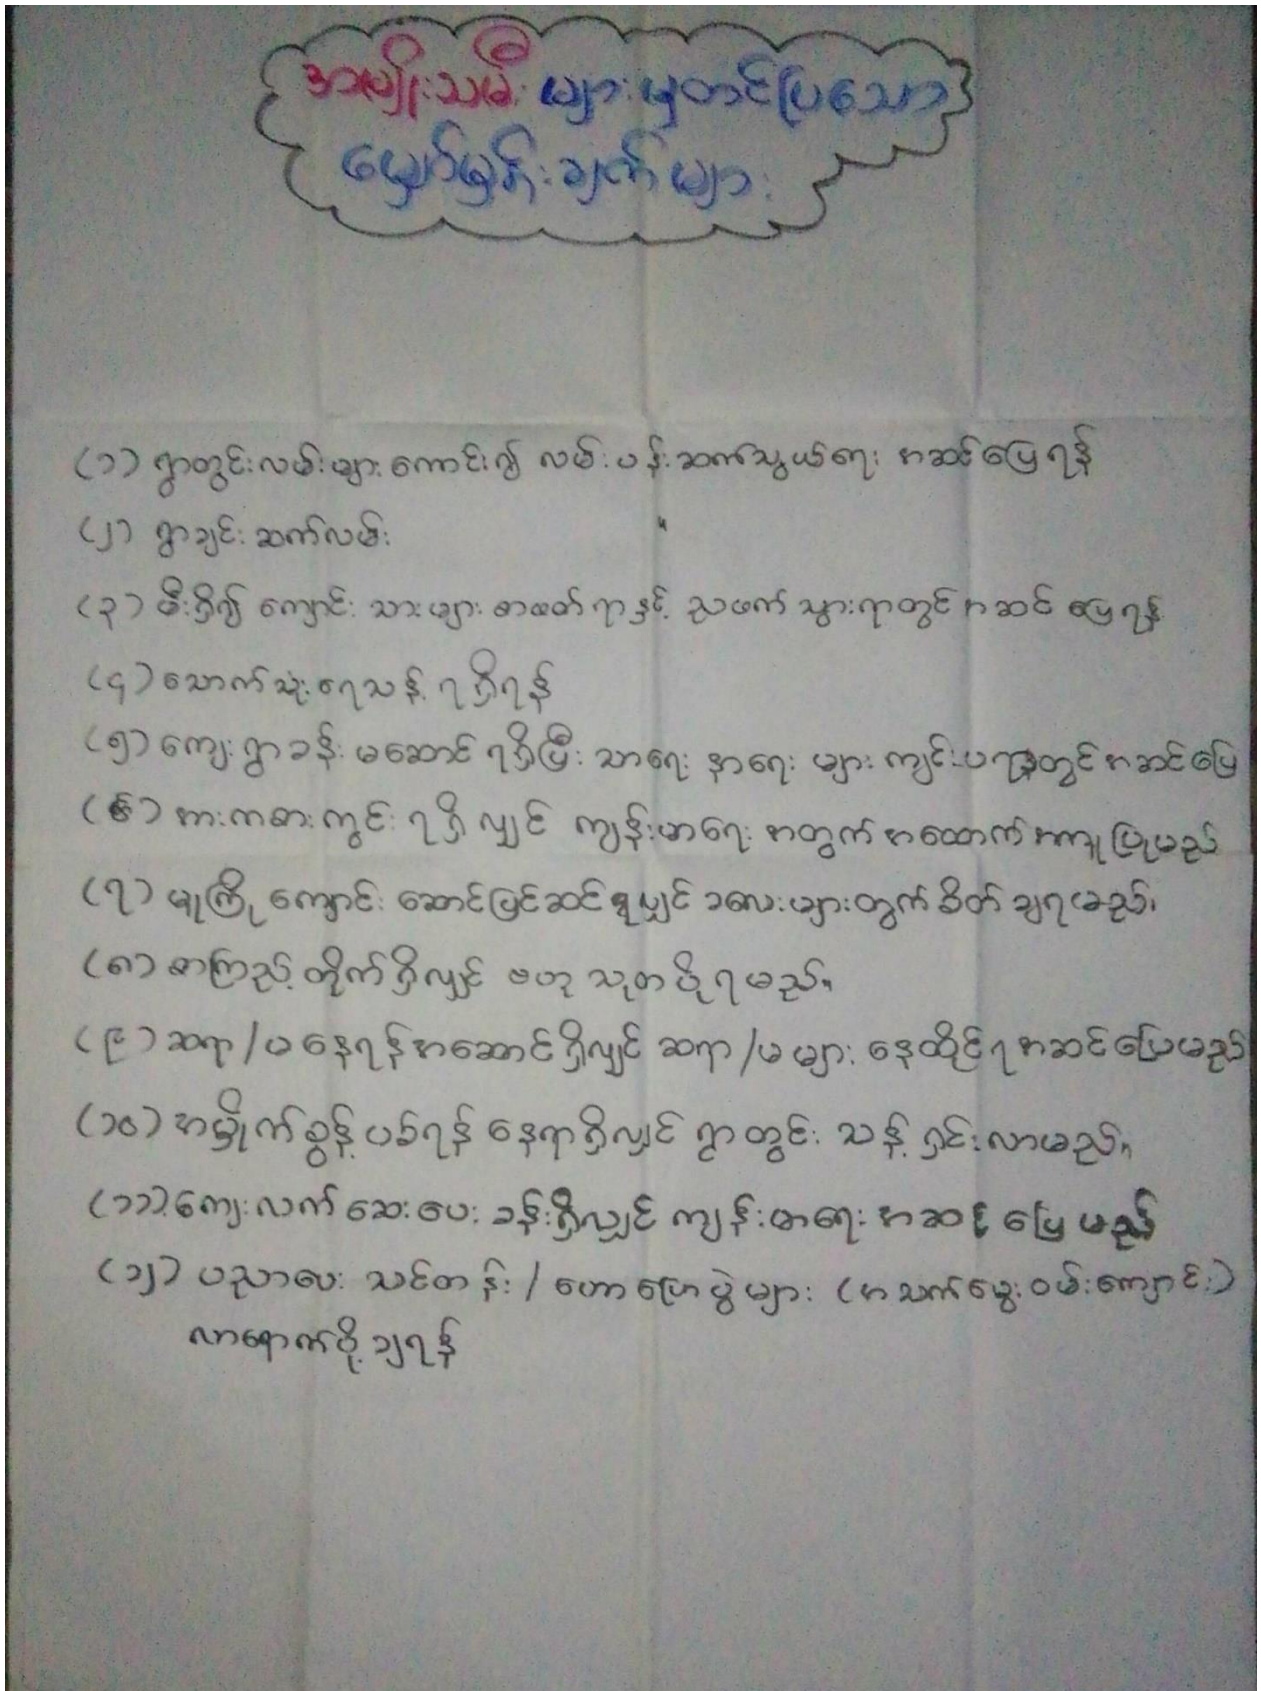 အမျိုးသမီးများမှတင်ပြသော
မျှော်မှန်းချက်များ
(၁) ရွာတွင်းလမ်းများကောင်း၍ လမ်းပန်းဆက်သွယ်ရေး အဆင်ပြေရန်
(၂) ရွာချင်းဆက်လမ်း
(၃) မီးရှိ၍ ကျောင်းသားများ စာဖတ်ရာနှင့် ညဖက်သွားရာတွင် အဆင်ပြေရန်
(၄) သောက်သုံးရေသန့် ရရှိရန်
(၅) ကျေးရွာခန်းမဆောင်ရရှိပြီး သာရေးနာရေးများ ကျင်းပရာတွင် အဆင်ပြေ
(၆) အားကစားကွင်း ရရှိလျှင် ကျန်းမာရေးအတွက် အထောက်အကူပြုမည်
(၇) မူကြိုကျောင်းဆောင်ပြင်ဆင်ရလျှင် ခလေးများတွက် စိတ်ချရမည်၊
(၈) စာကြည့်တိုက်ရှိလျှင် ဗဟုသုတပိုရမည်။
(၉) ဆရာ/မ နေရန်အဆောင်ရှိလျှင် ဆရာ/မများ နေထိုင်ရအဆင်ပြေမည်
(၁၀) အမှိုက်စွန့်ပစ်ရန် နေရာရှိလျှင် ရွာတွင်း သန့်ရှင်းလာမည်။
(၁၁) ကျေးလက်ဆေးပေးခန်းရှိလျှင် ကျန်းမာရေး အဆင်ပြေမည်
(၁၂) ပညာပေး သင်တန်း/ဟောပြောပွဲများ (အသက်မွေးဝမ်းကျောင်း)
လာရောက်ပို့ချရန်